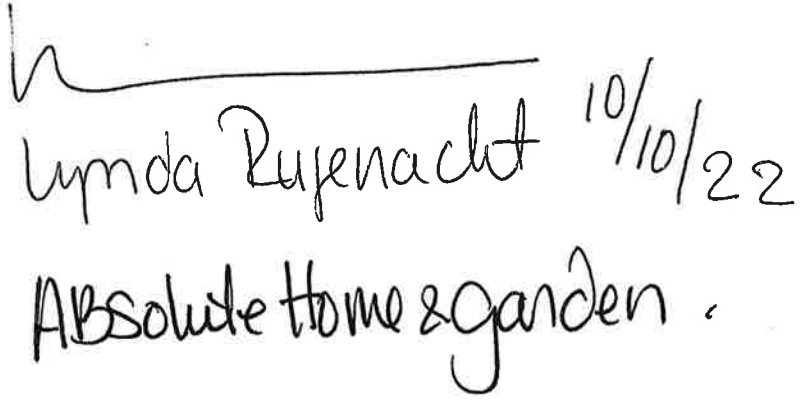 Lynda Rufenacht 10/10/22
Absolute Home & garden.